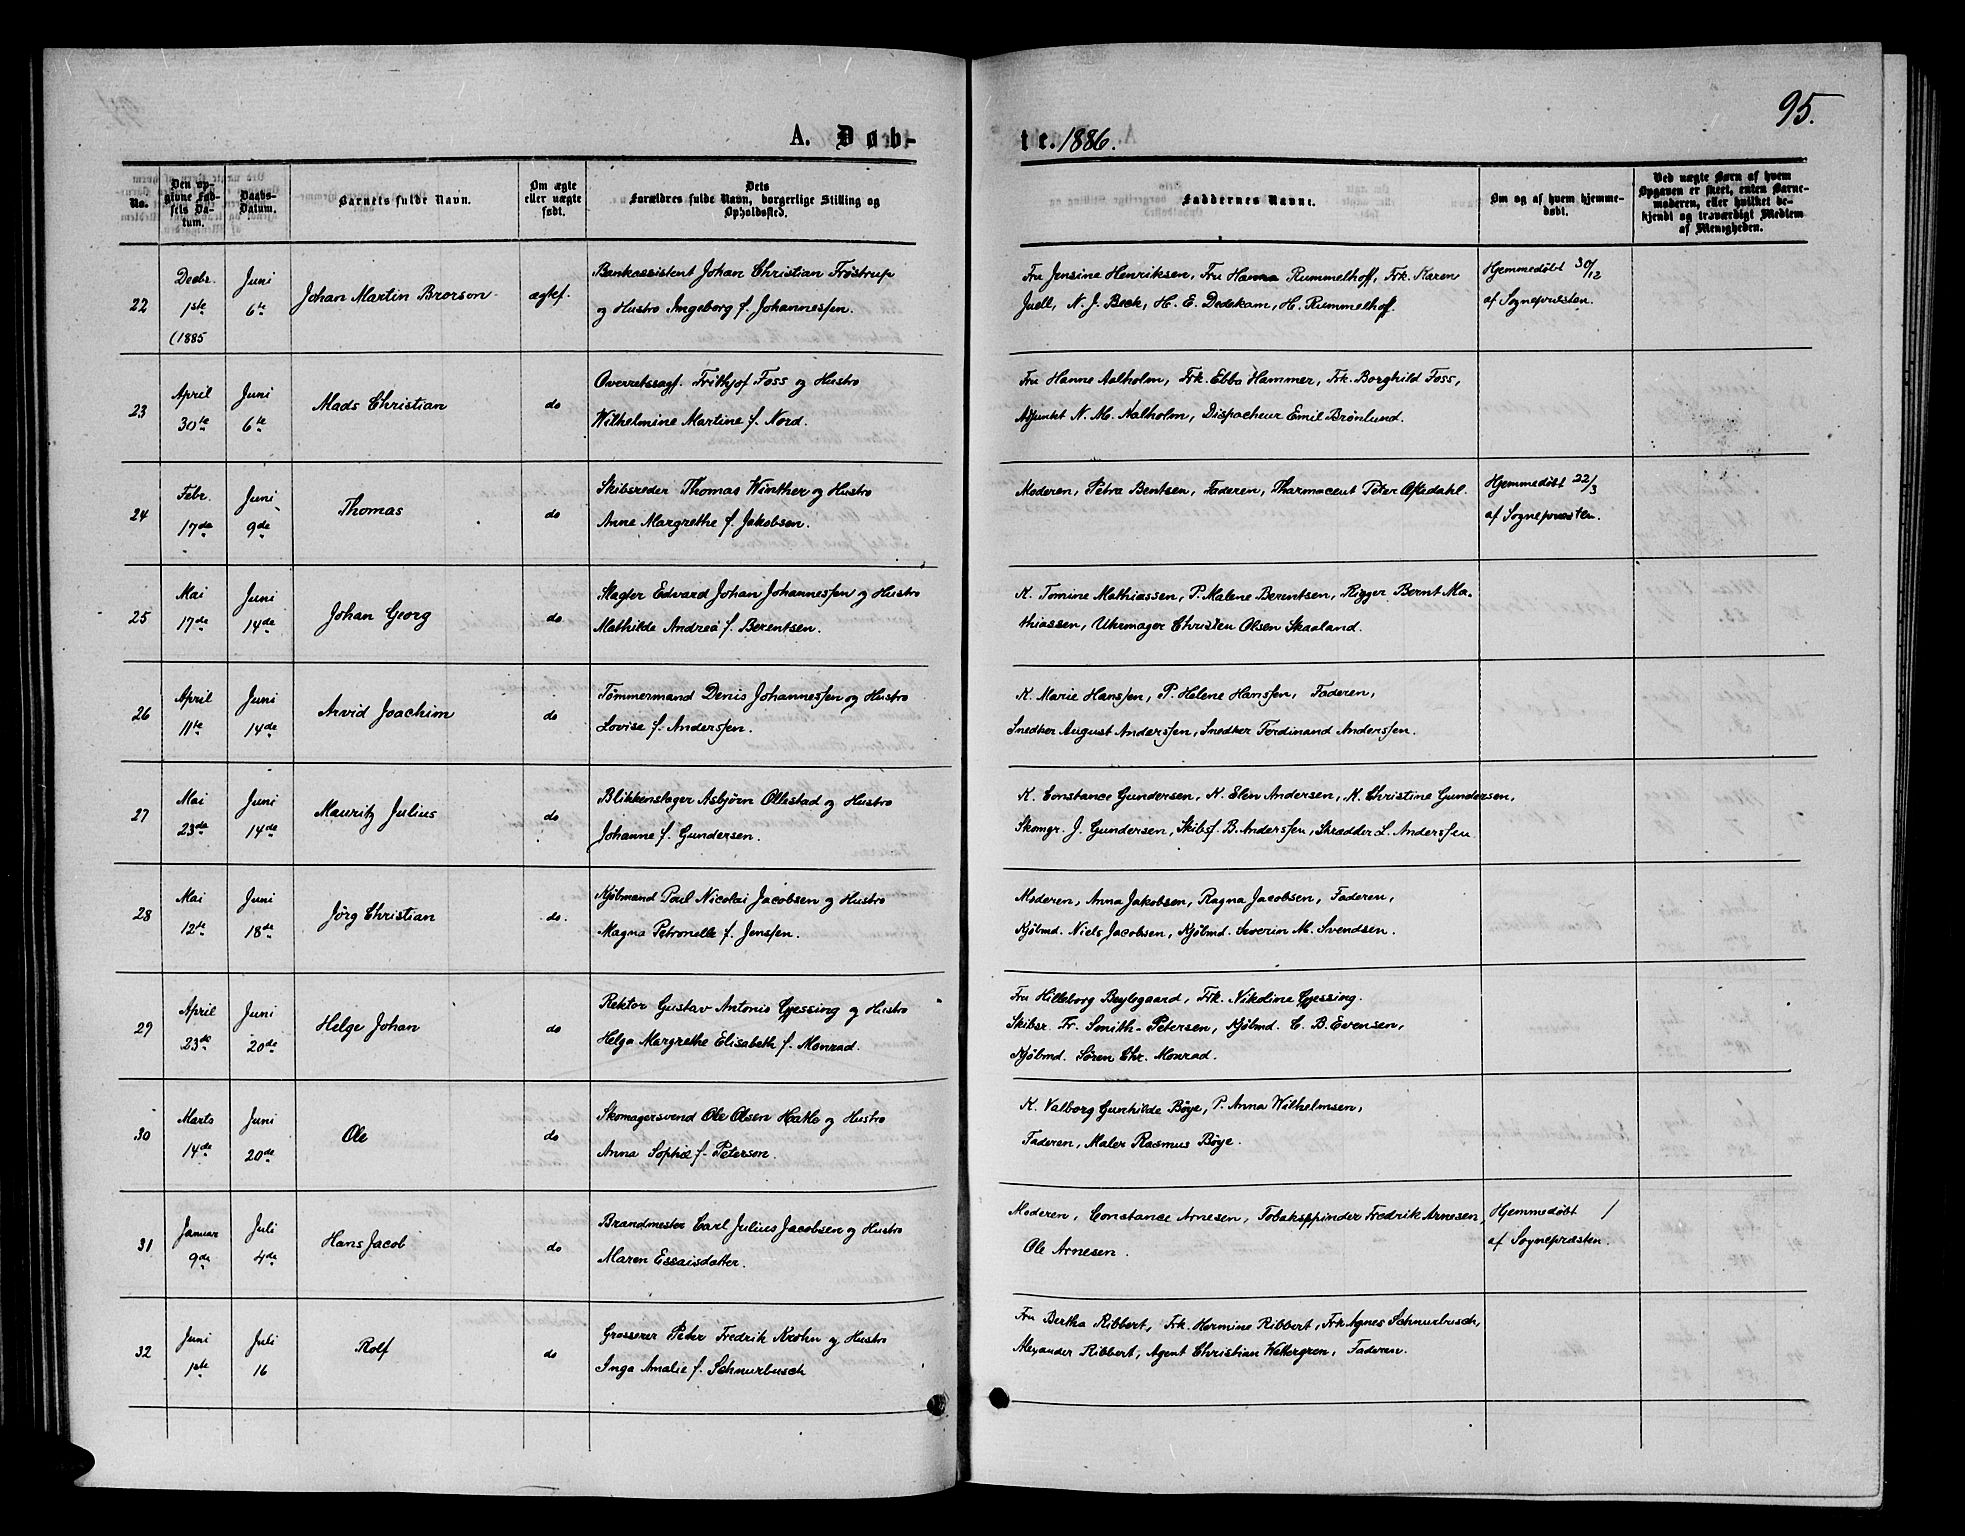 95.
A. Døb-
te. 1886.
No.
Den op-
givne Fød-
sels Da-
tum.
Daabs-
Datum.
Barnets fulde Navn.
Om ægte
eller uægte
født.
Dets
Forældres fulde Navn, borgerlige Stilling og
Opholdssted.
Faddernes Navne.
Om og af hvem hjemme-
døbt.
Ved uægte Børn af hvem
Opgaven er skeet, enten Barne-
moderen, eller hvilket be-
kjendt og troværdigt Medlem
af Menigheden.
22
Decbr.
1ste
(1885
Juni
6te
Johan Martin Brorson
ægtef.
Bankassistent Johan Christian Frøstrup
og Hustro Ingeborg f. Johannessen.
Fru Jensine Henriksen, Fru Hanna Rummelhoff, Frk. Karen
Juell, N. J. Beck, H. E. Dedekam, H. Rummelhoff.
Hjemmedøbt 30/12
af Sognepræsten.
23
April
30te
Juni
6te
Mads Christian
do
Overretssagf. Frithjof Foss og Hustro
Wilhelmine Martine f. Nord.
Fru Hanne Aalholm, Frk. Ebba Hammer, Frk. Borghild Foss,
Adjunkt N. M. Aalholm, Dispacheur Emil Brønlund.
24
Febr.
17de
Juni
9de
Thomas
do
Skibsreder Thomas Winther og Hustro
Anne Margrethe f. Jakobsen.
Moderen, Petra Bentsen, Faderen, Pharmaceut Peter Askedahl.
Hjemmedøbt 22/3
af Sognepræsten.
25
Mai
17de
Juni
14de
Johan Georg
do
Slagter Edvard Johan Johannessen og Hustro
Mathilde Andrea f. Berentsen.
K. Tomine Mathiassen, P. Malene Berentsen, Rigger Bernt Ma-
thiassen, Uhrmager Christen Olsen Skaaland.
26
April
11te
Juni
14de
Arvid Joachim
do
Tømmermand Denis Johannessen og Hustro
Lovise f. Anderssen.
K. Marie Hanssen, P. Helene Hanssen, Faderen,
Snedker August Anderssen, Snedker Ferdinand Anderssen.
27
Mai
23de
Juni
14de
Mauritz Julius
do
Blikkenslager Asbjørn Ollestad og Hustro
Johanne f. Gundersen.
K. Constance Gundersen, K. Elen Andersen, K. Christine Gundersen,
Skomgr. J. Gundersen, Skibsf. B. Anderssen, Skrædder L. Anderssen
28
Mai
12te
Juni
18de
Jörg Christian
do.
Kjøbmand Poul Nicolai Jacobsen og Hustro
Magna Petronelle f. Jenssen.
Moderen, Anna Jakobsen, Ragna Jacobsen, Faderen,
Kjøbmd. Niels Jacobsen, Kjøbmd. Severin M. Svendsen.
29
April
23de
Juni
20de
Helge Johan
do
Rektor Gustav Antonio Gjessing og Hustro
Helga Margrethe Elisabeth f. Monrad.
Fru Hilleborg Beylegaard, Frk. Nikoline Gjessing.
Skibsr. Fr. Smith-Petersen, Kjøbmd. C. B. Evensen,
Kjøbmd. Søren Chr. Monrad.
30
Marts
14de
Juni
20de
Ole
do
Skomagersvend Ole Olsen Hække og Hustro
Anna Sophie f. Peterson.
K. Valborg Gunhilde Bøye, P. Anna Wilhelmsen,
Faderen, Maler Rasmus Bøye.
31
Januar
9de
Juli
4de
Hans Jacob
do
Brandmester Carl Julius Jacobsen og Hustro
Maren Essaisdatter.
Moderen, Constance Arnesen, Tobakspinder Fredrik Arnesen,
Ole Arnesen.
Hjemmedøbt /
af Sognepræsten.
32
Juni
1ste
Juli
16
Rolf
do
Grosserer Peter Fredrik Krohn og Hustro
Inga Amalie f. Schnurbusch
Fru Bertha Ribbert, Frk. Hermine Ribbert, Frk Agnes Schnurbusch,
Alexander Ribbert, Agent Christian Wettergren, Faderen.